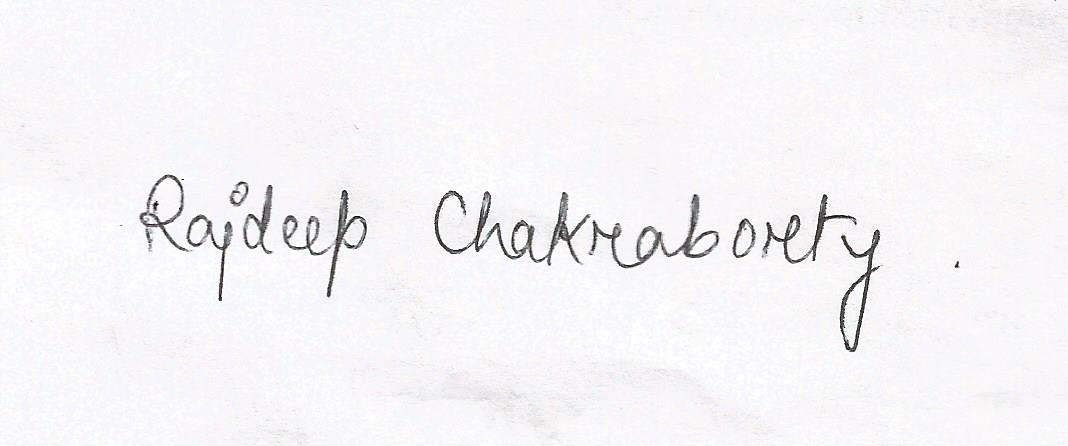 Rajdeep Chakraborty.